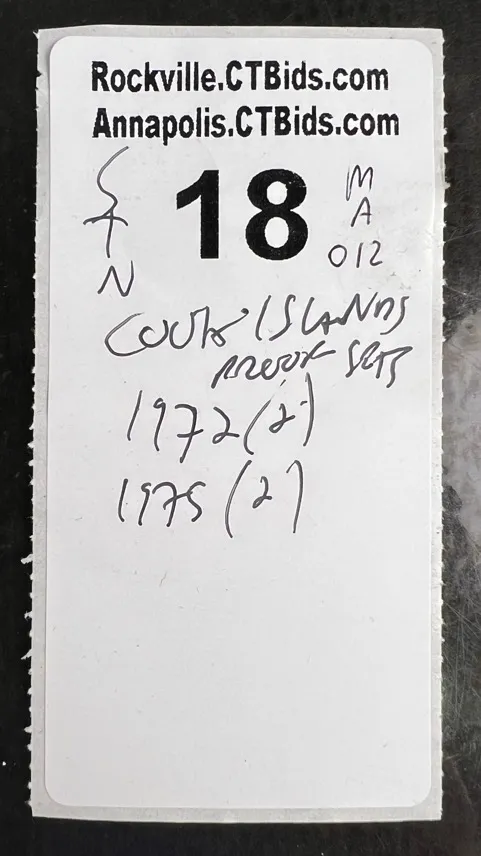 Rockville.CTBids.com
Annapolis.CTBids.com
18
M
A
012
COOK ISLANDS
PROOF SETS
1972 (2)
1975 (2)